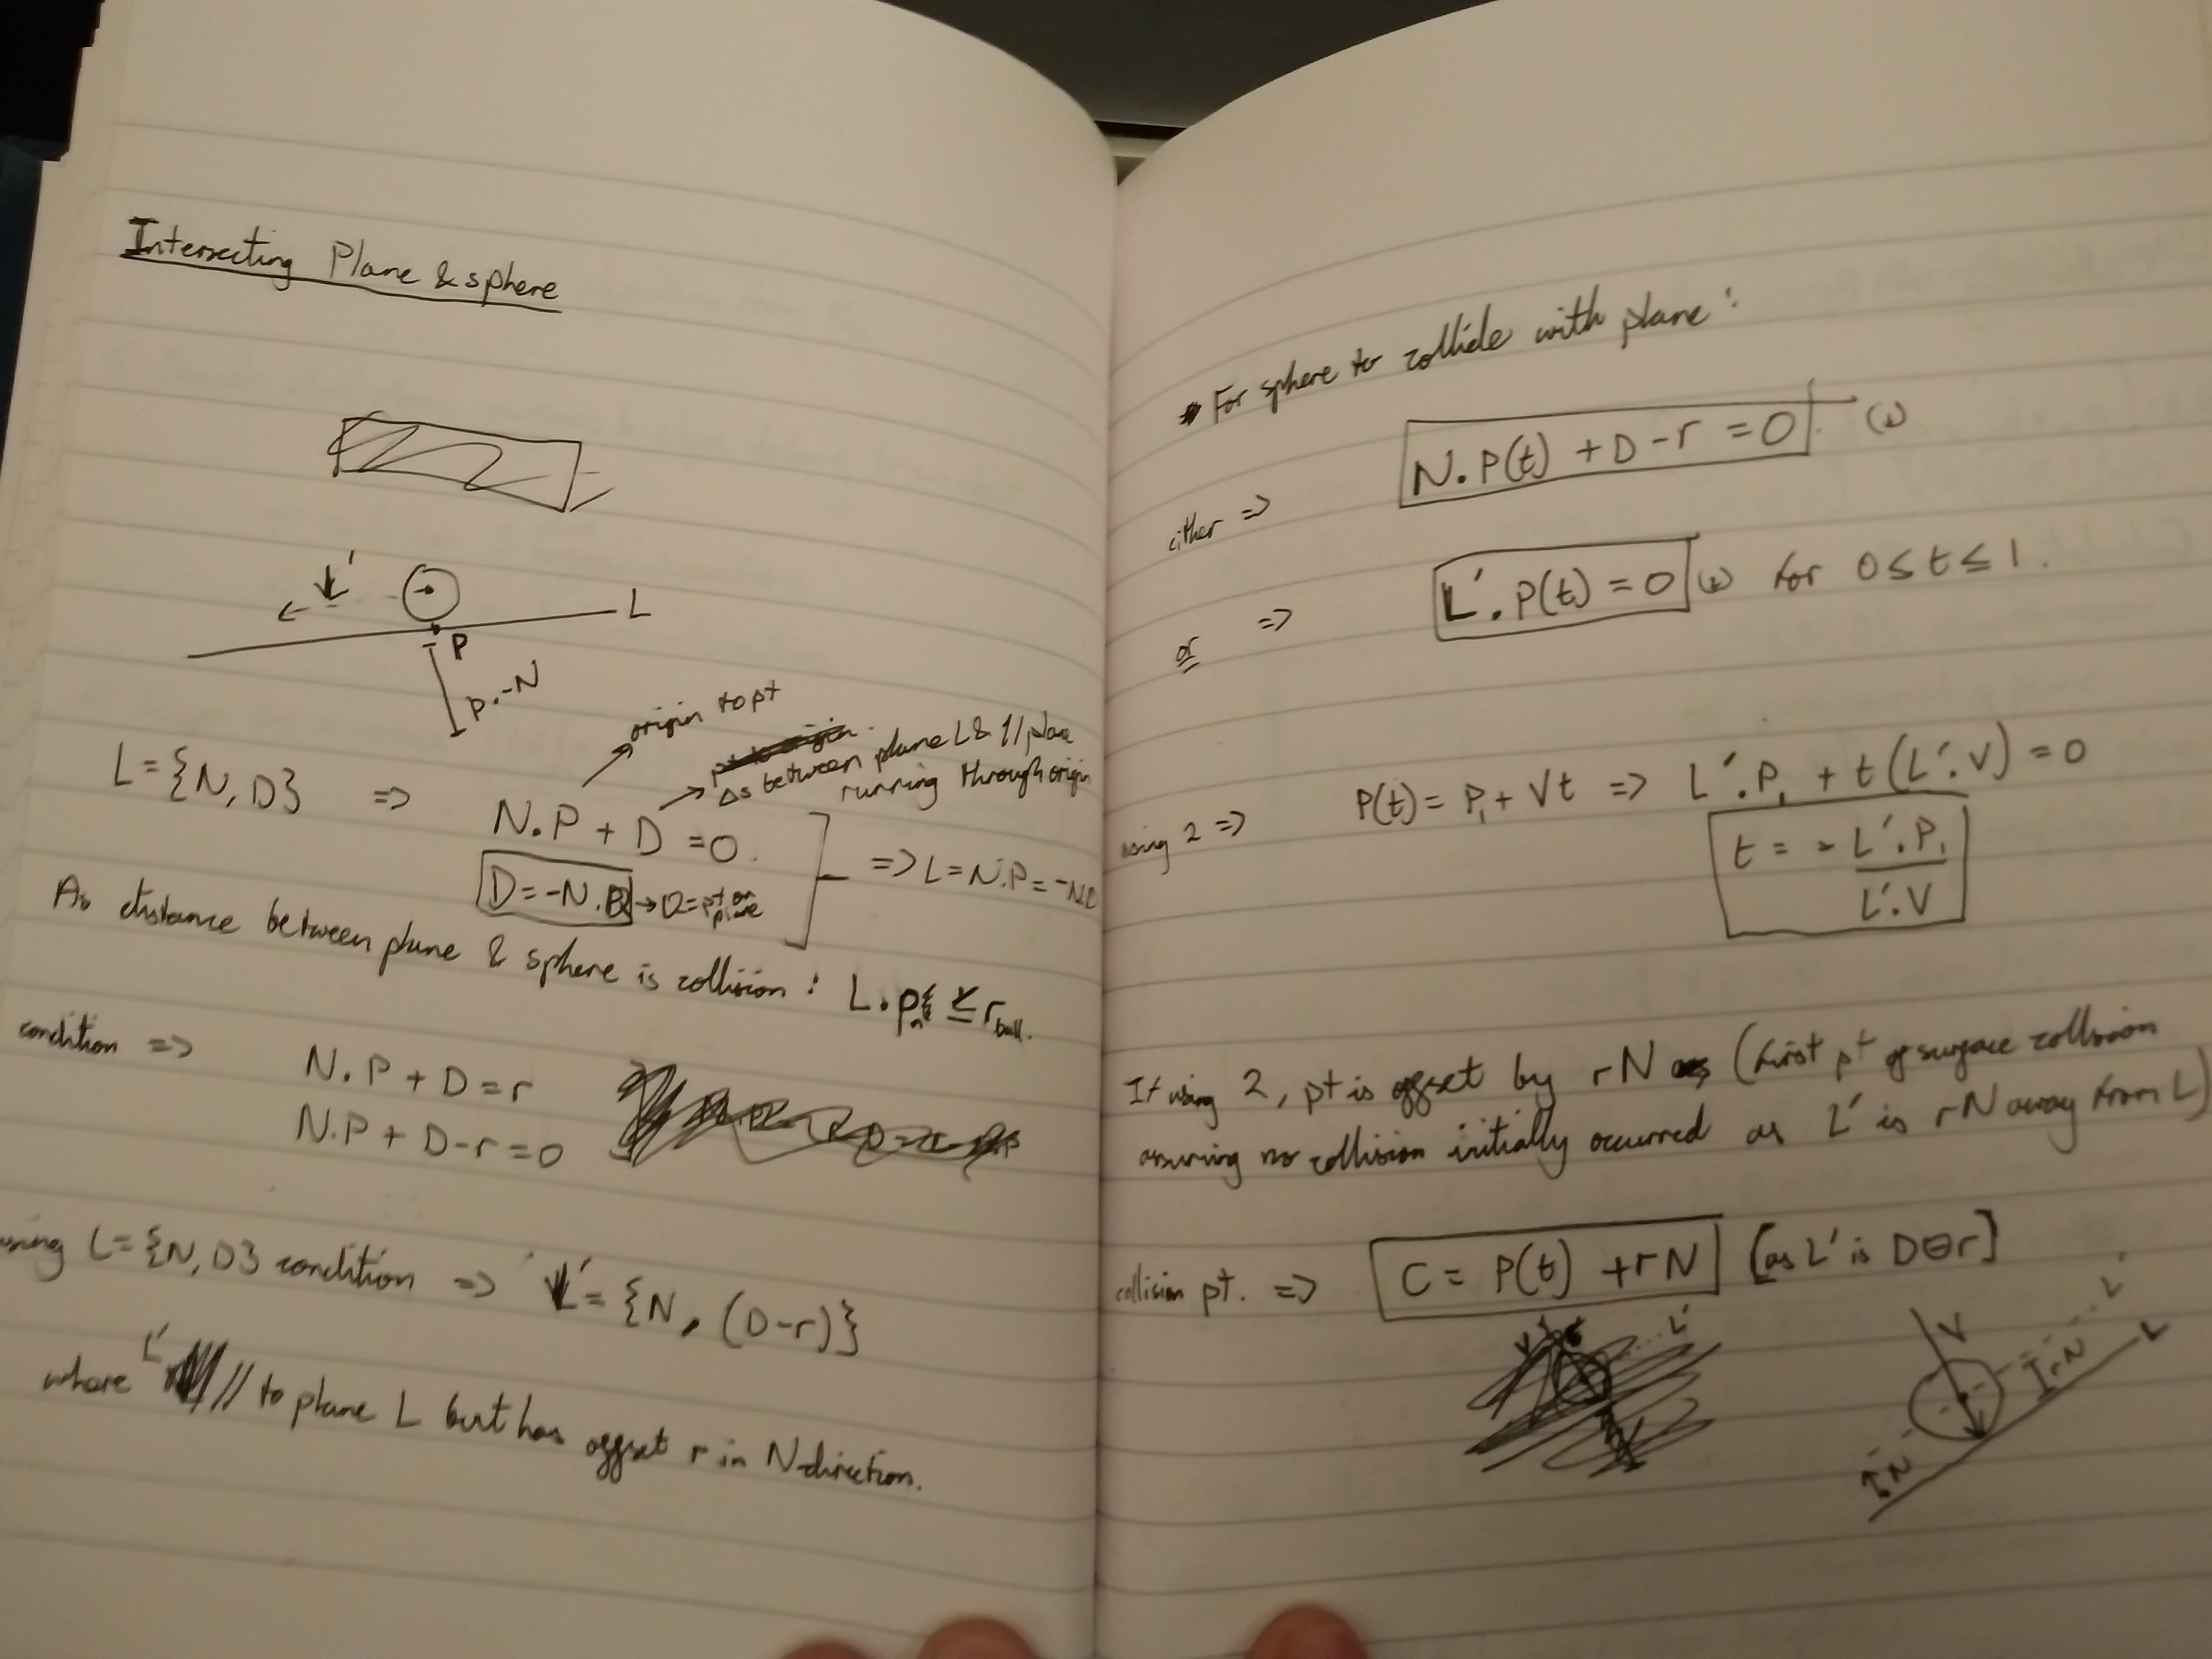 Intersecting Plane & sphere
L'
L
P
P.-N
origin to pt
Δs between plane L & // plane
running through origin
L = {N, D} => N.P + D = 0.
D = -N.Q → Q = pt on plane
=> L = N.P = -N.Q
As distance between plane & sphere is collision : L.P ≤ r ball.
condition => N.P + D = r
N.P + D - r = 0
using L = {N, D} condition => L' = {N, (D-r)}
where L' // to plane L but has offset r in N-direction.
For sphere to collide with plane :
either => N.P(t) + D - r = 0. (1)
or => L'.P(t) = 0 (2) for 0 ≤ t ≤ 1.
using 2 => P(t) = P₁ + Vt => L'.P₁ + t(L'.V) = 0
t = - L'.P₁
L'.V
If using 2, pt is offset by rN (first pt of surface collision
assuming no collision initially occurred as L' is rN away from L)
collision pt. => C = P(t) + rN [as L' is D⊖r]
L'
V
L'
rN
L
N